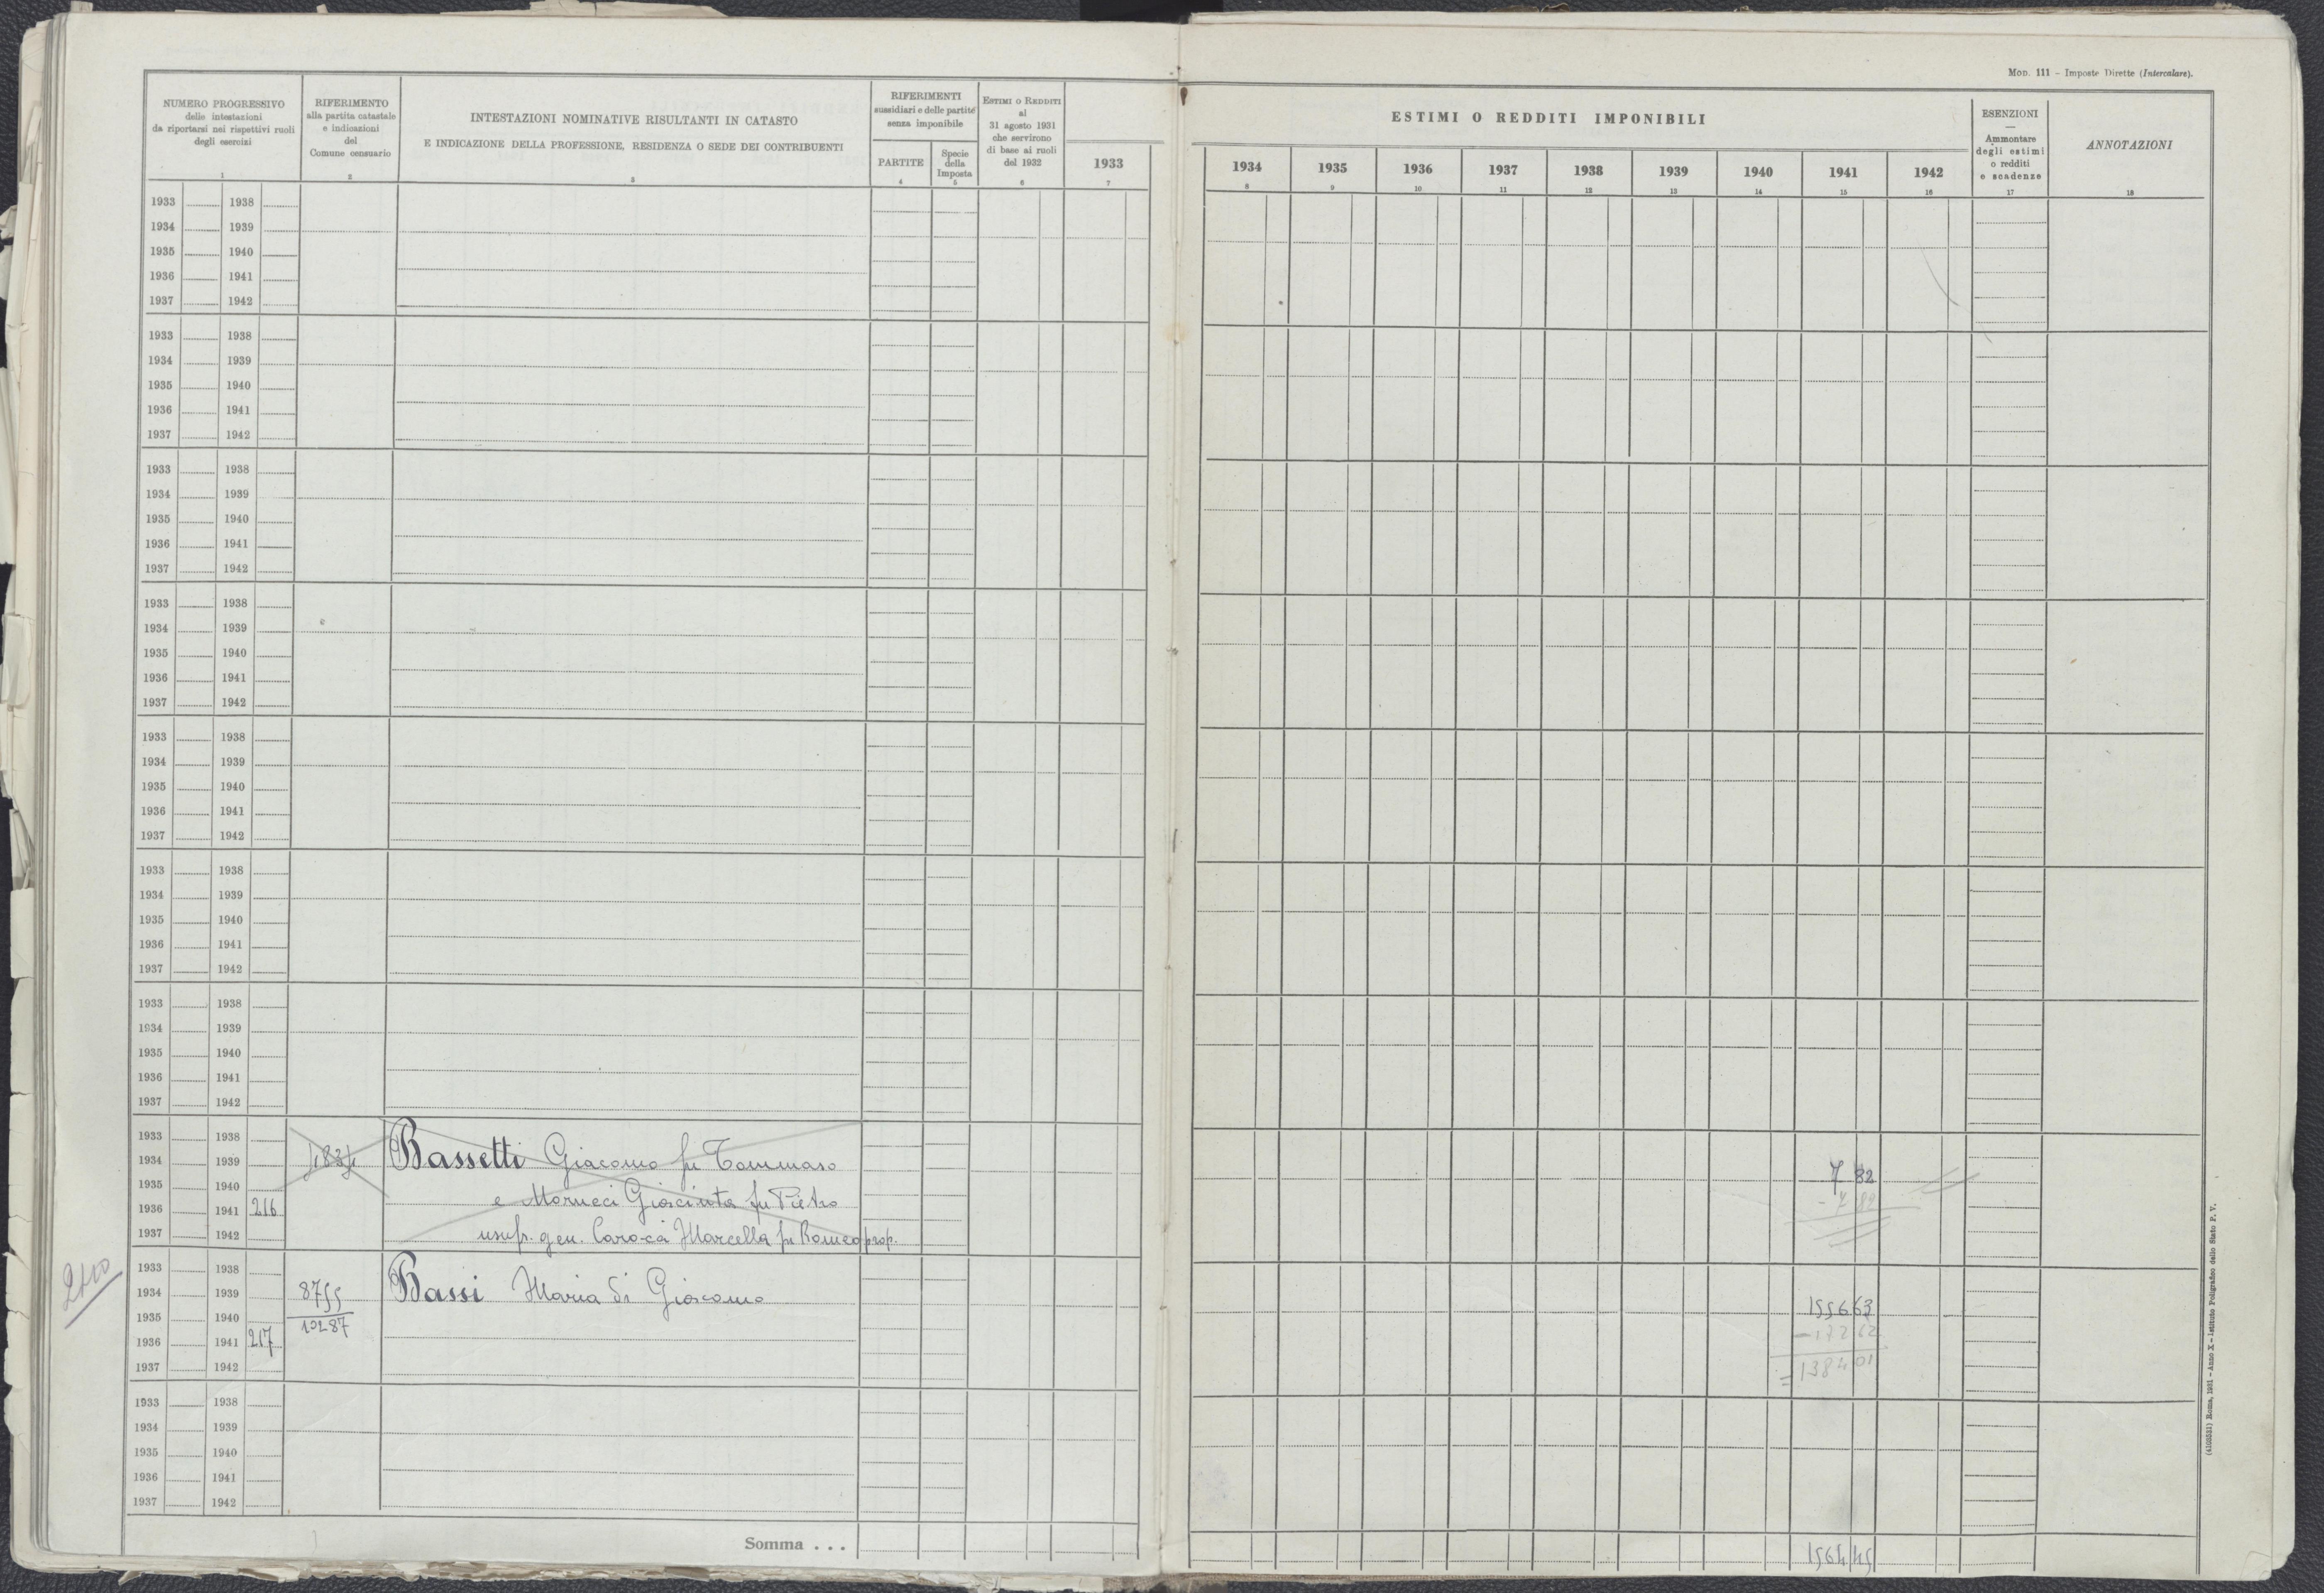 Mod. 111 - Imposte Dirette (Intercalare).
NUMERO PROGRESSIVO
delle intestazioni
da riportarsi nei rispettivi ruoli
degli esercizi
1
RIFERIMENTO
alla partita catastale
e indicazioni
del
Comune censuario
2
INTESTAZIONI NOMINATIVE RISULTANTI IN CATASTO
E INDICAZIONE DELLA PROFESSIONE, RESIDENZA O SEDE DEI CONTRIBUENTI
3
RIFERIMENTI
sussidiari e delle partite
senza imponibile
PARTITE
4
Specie
della
Imposta
5
Estimi o Redditi
al
31 agosto 1931
che servirono
di base ai ruoli
del 1932
6
1933
7
ESTIMI O REDDITI IMPONIBILI
1934 1935 1936 1937 1938 1939 1940 1941 1942
8 9 10 11 12 13 14 15 16
ESENZIONI
—
Ammontare
degli estimi
o redditi
e scadenze
17
ANNOTAZIONI
18
1933 1938
1934 1939
1935 1940
1936 1941
1937 1942
1933 1938
1934 1939
1935 1940
1936 1941
1937 1942
1933 1938
1934 1939
1935 1940
1936 1941
1937 1942
1933 1938
1934 1939
1935 1940
1936 1941
1937 1942
1933 1938
1934 1939
1935 1940
1936 1941
1937 1942
1933 1938
1934 1939
1935 1940
1936 1941
1937 1942
1933 1938
1934 1939
1935 1940
1936 1941
1937 1942
1933 1938
1934 1939 Bassetti Giacomo fu Tommaso 7 82
1935 1940 e Morucci Giacinta fu Pietro - 7 82
1936 1941 216
1937 1942 usufr. gen. Caroca Marcella fu Romeo prop.
1933 1938
1934 1939 8755 Bassi Maria di Giacomo 1556 63
1935 1940 10287 - 172 62
1936 1941 217 = 1384 01
1937 1942
1933 1938
1934 1939
1935 1940
1936 1941
1937 1942
Somma . . . 1564 45
(4103531) Roma, 1931 - Anno X - Istituto Poligrafico dello Stato P. V.